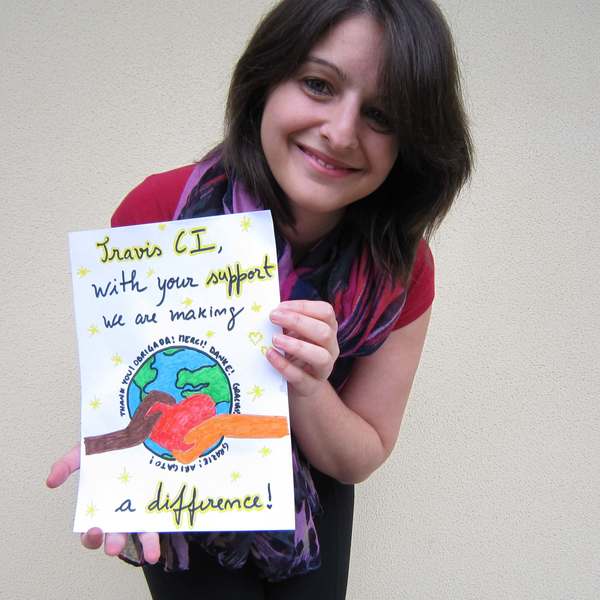 Travis CI,
With your support
we are making
THANK YOU! OBRIGADA! MERCI! DANKE! GRACIAS!
GRAZIE! ARIGATO!
a difference!